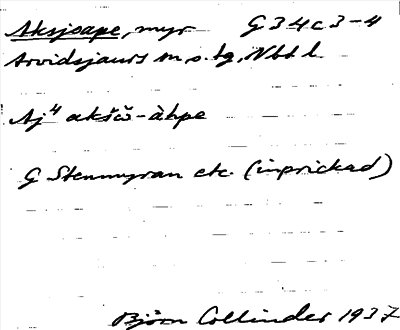 Aksjoape, myr G 34c 3-4
Arvidsjaurs sn o. tg, Nbt l.
Aj⁴ akšŏ-àhpe
G Stenmyran etc. (inprickad)
Björn Collinder 1937